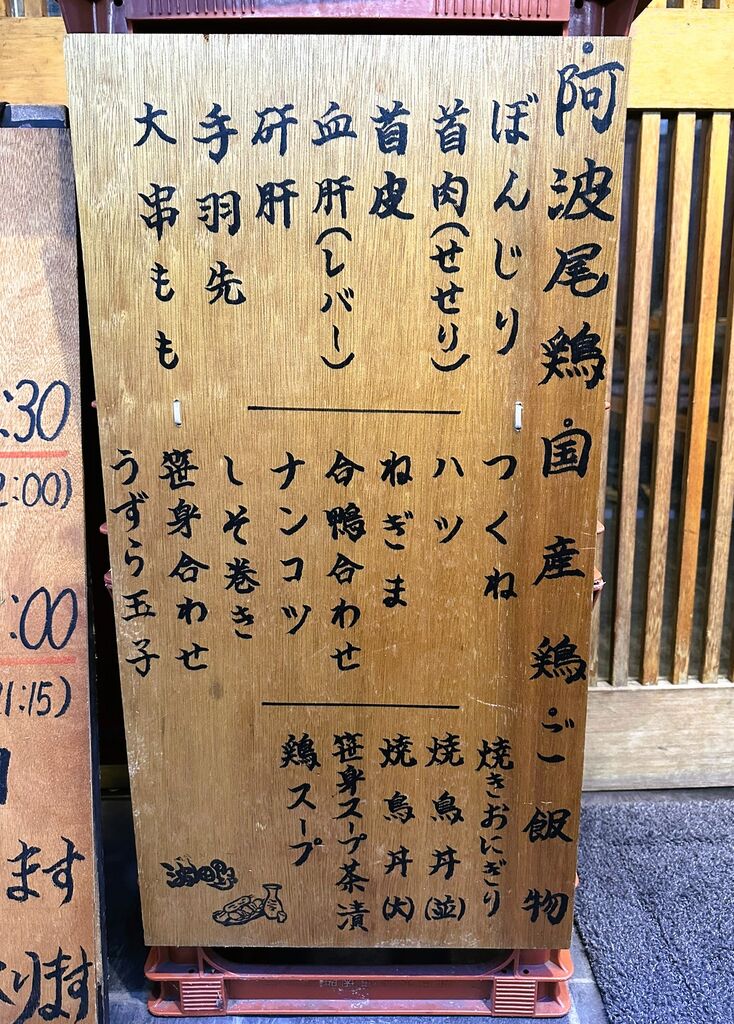 阿波尾鶏
ぼんじり
首肉(せせり)
首皮
血肝(レバー)
研肝
手羽先
大串もも
国産鶏
つくね
ハツ
ねぎま
合鴨合わせ
ナンコツ
しそ巻き
笹身合わせ
うずら玉子
ご飯物
焼きおにぎり
焼鳥丼(並)
焼鳥丼(大)
笹身スープ茶漬
鶏スープ
:30
2:00)
:00
11:15)
ます
ります